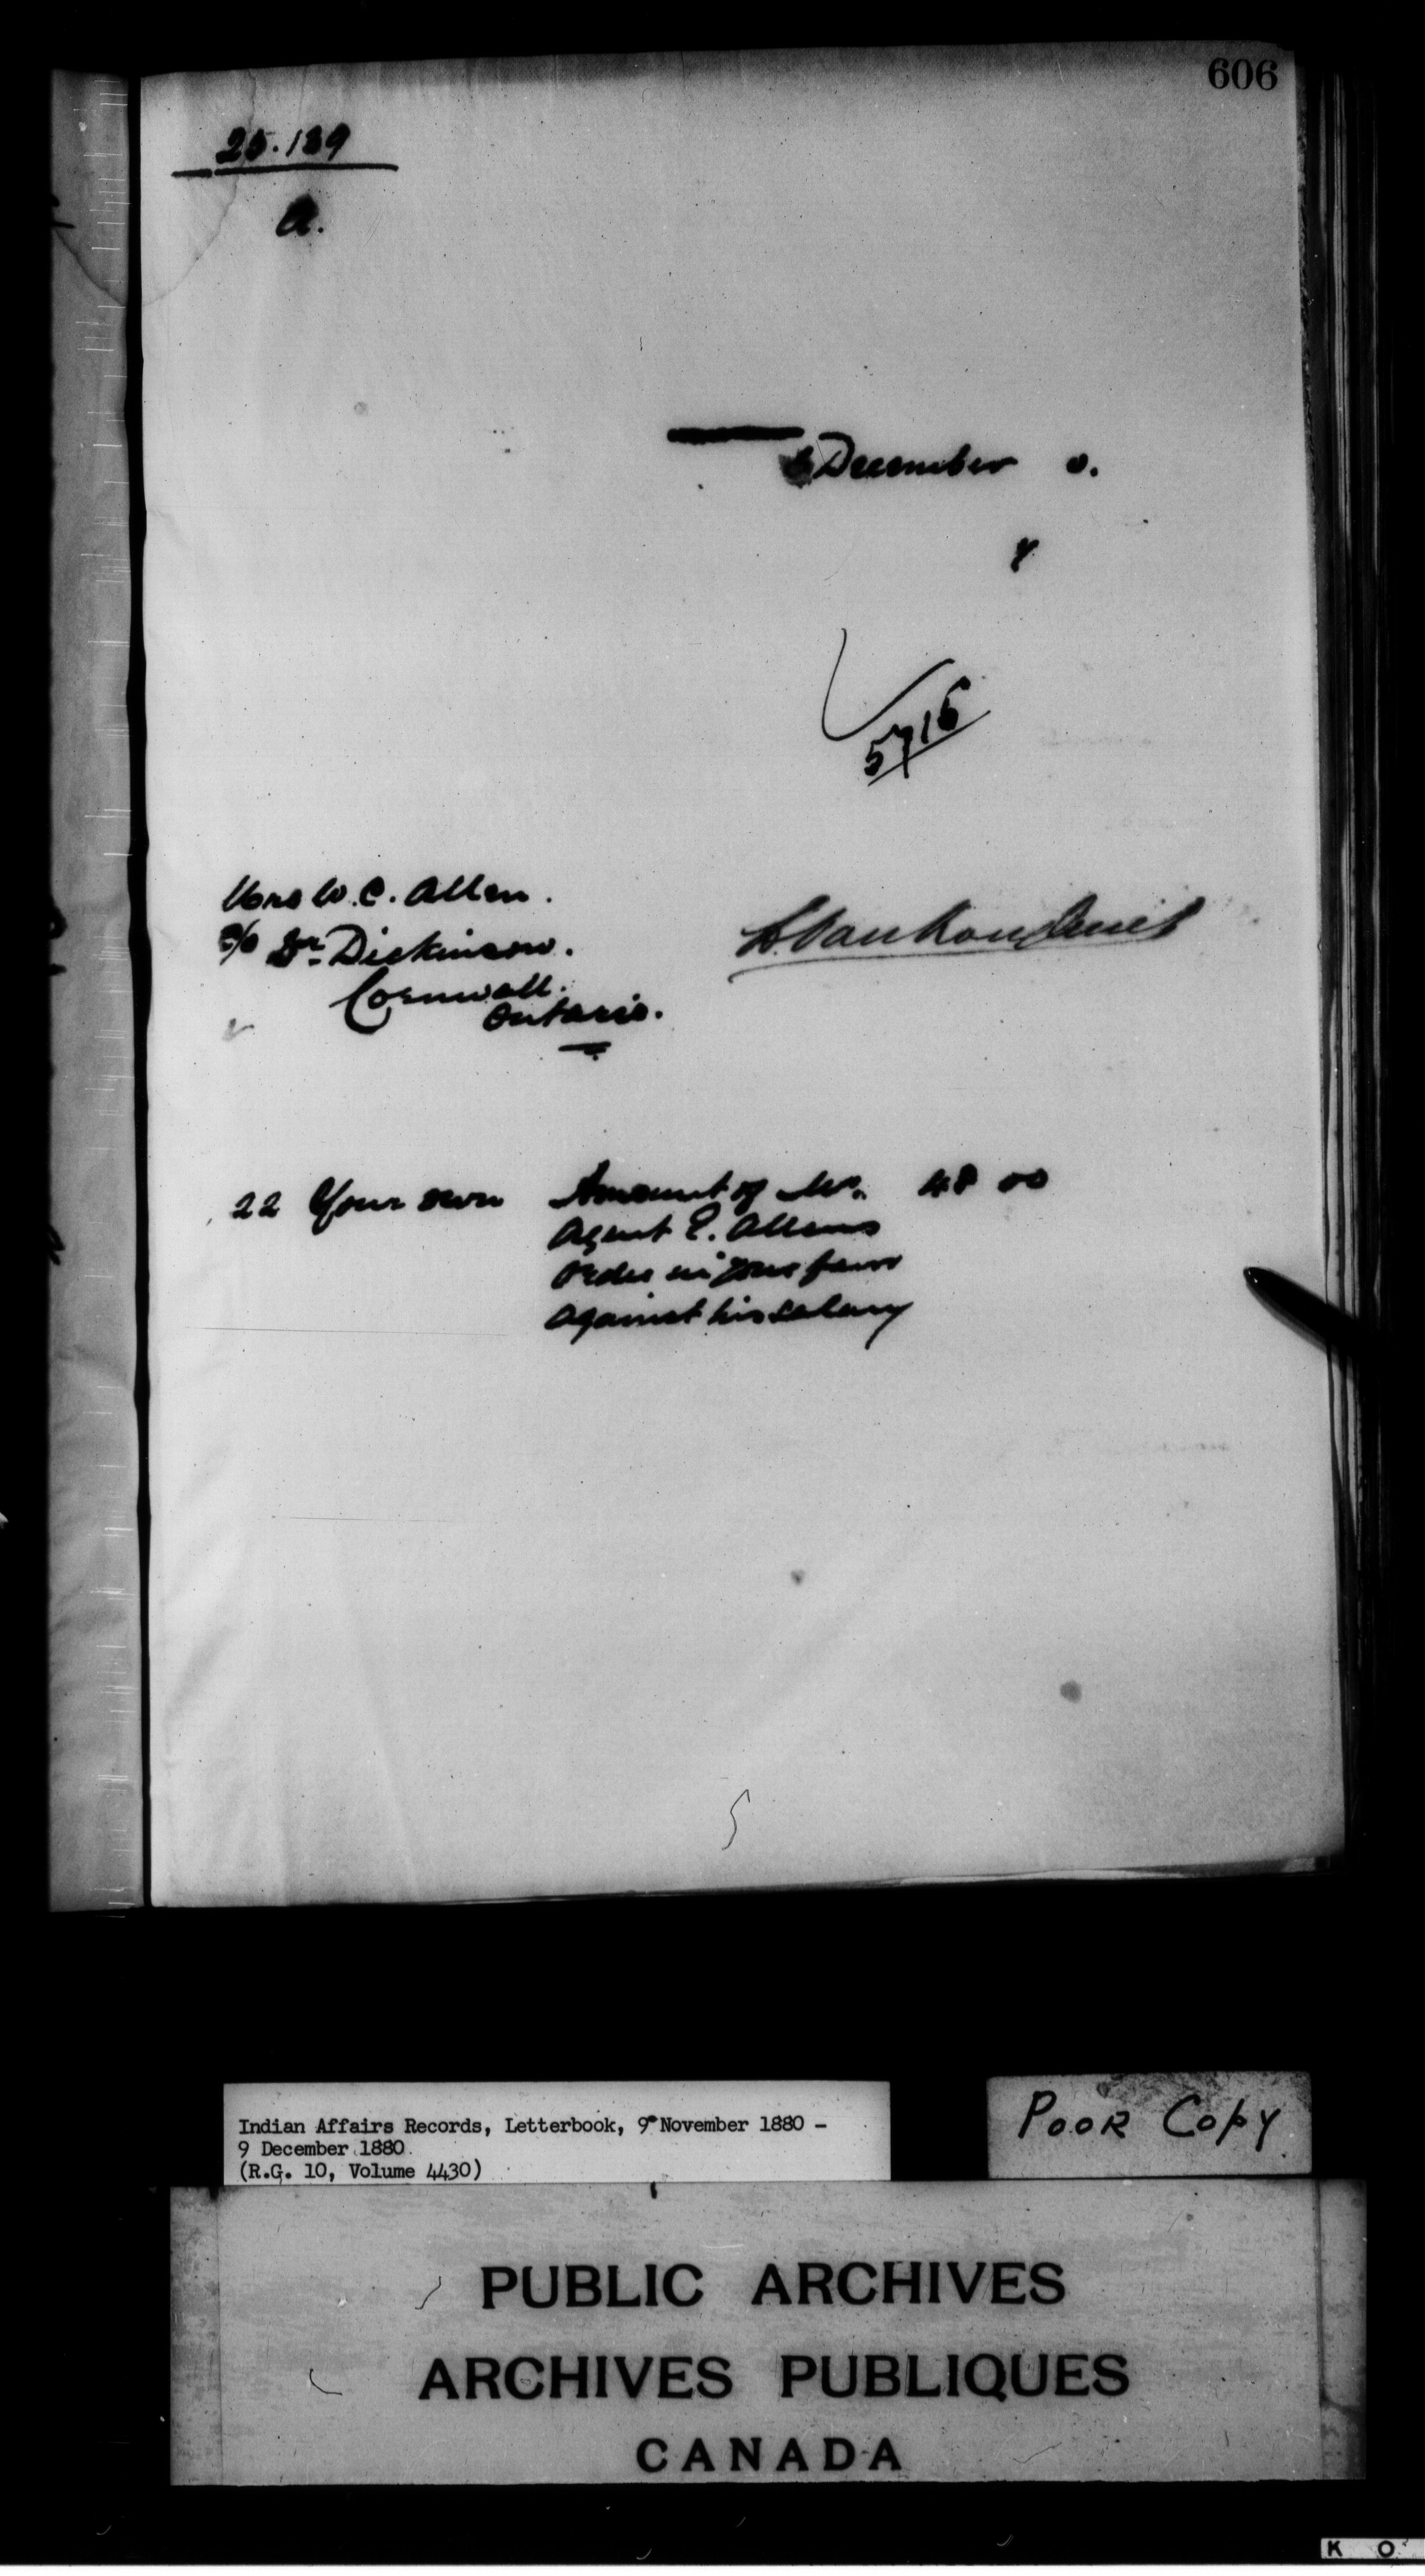 606
25.189
A.
December 0.
5715
Mrs W. C. Allen.
c/o Dr Dickinson.
Cornwall.
Ontario.
L. Vankoughnet
22 Your own Amount of Mr. 48 00
Agent E. Allens
Order in your favor
against his salary
Indian Affairs Records, Letterbook, 9 November 1880 -
9 December 1880
(R.G. 10, Volume 4430)
POOR COPY
PUBLIC ARCHIVES
ARCHIVES PUBLIQUES
CANADA
K O